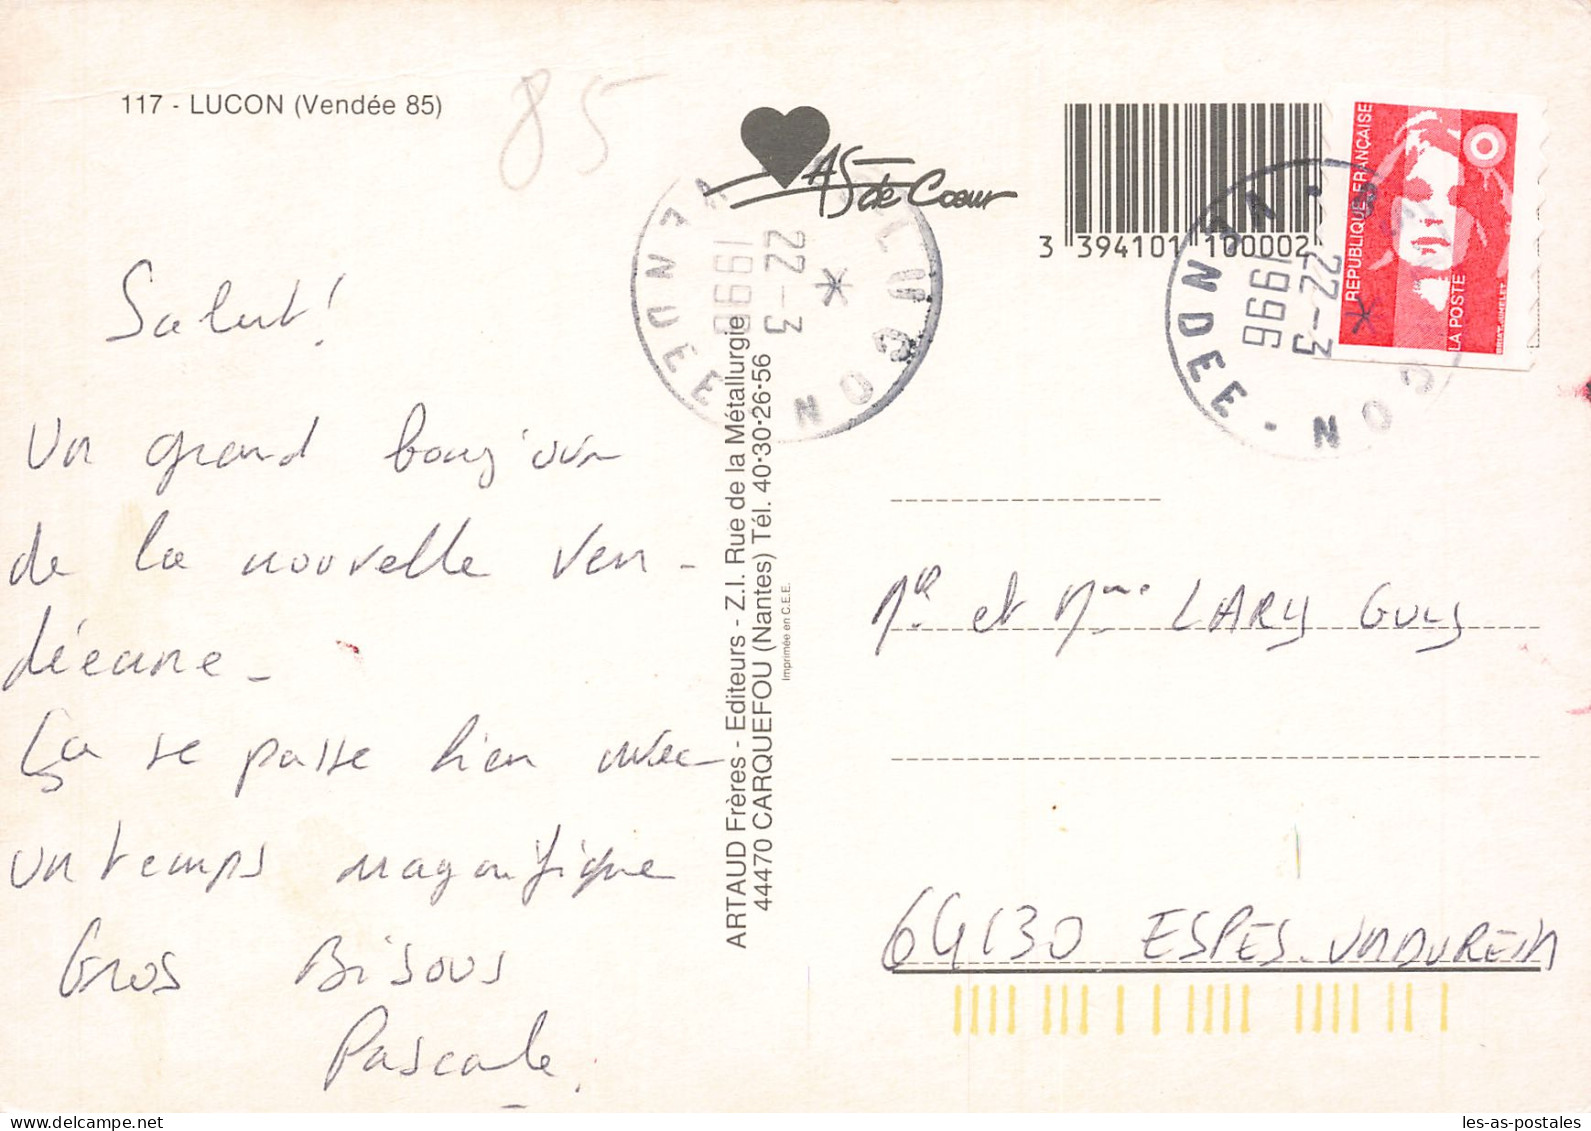 117 - LUCON (Vendée 85)
85
AS de Cœur
3 394101 100002
REPUBLIQUE FRANÇAISE
LA POSTE
LUCON
VENDEE
22-3
1996
LUCON
VENDEE
22-3
1996
Salut!
Un grand bonjour
de la nouvelle Ven-
déeanne -
Ça se passe bien avec
un temps magnifique
Gros Bisous
Pascale.
ARTAUD Frères - Editeurs - Z.I. Rue de la Métallurgie
44470 CARQUEFOU (Nantes) Tél. 40·30·26·56
Imprimée en C.E.E.
Mr et Mme LARY Guy
64130 ESPES-UNDUREIN
les-as-postales
les-as-postales.com